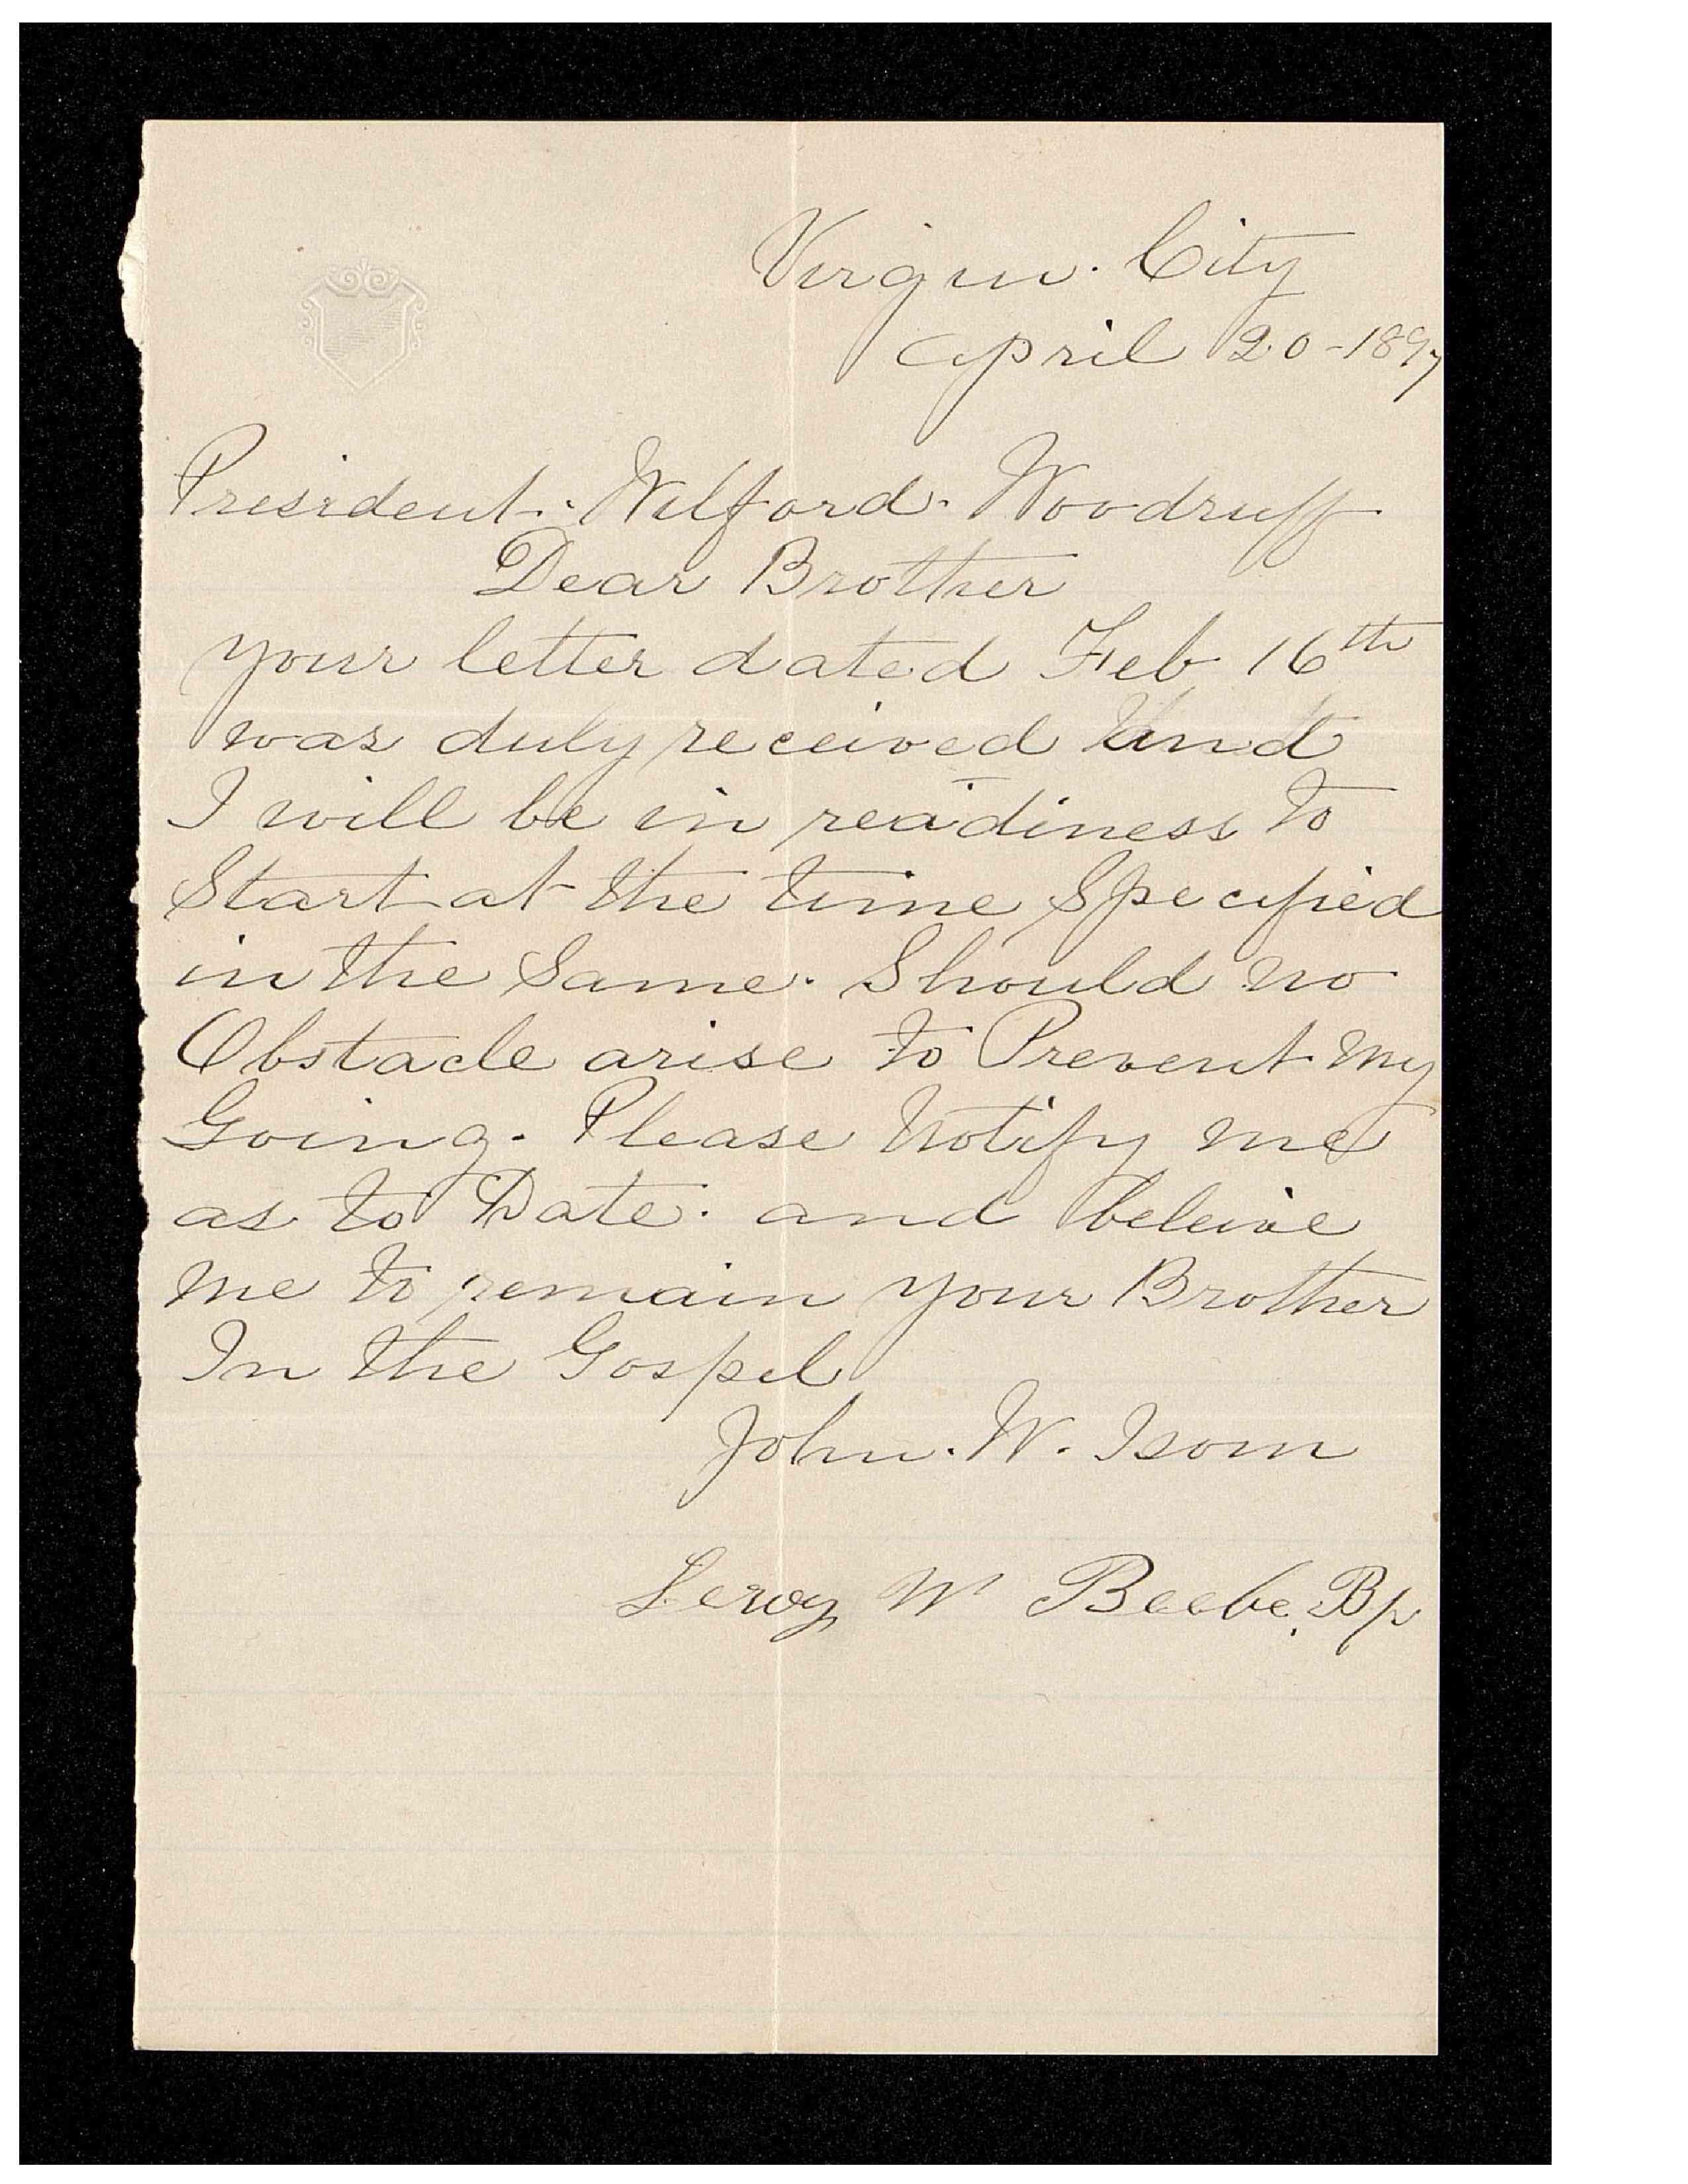 Virgin. City
April 20-1897
President. Wilford. Woodruff
Dear Brother
your letter dated Feb 16th
was duly received And
I will be in readiness to
Start at the time Specified
in the Same. Should no
Obstacle arise to Prevent My
Going. Please Notify me
as to Date. and beleive
me to remain your Brother
In the Gospel
John. W. Isom
Leroy W Beebe, Bp